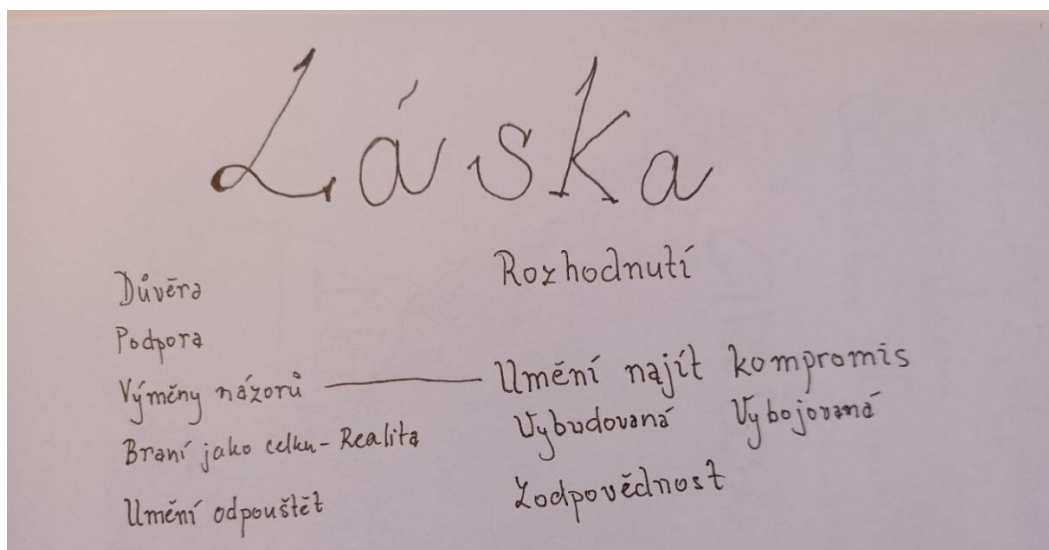 Láska
Důvěra
Podpora
Výměny názorů — Umění najít kompromis
Braní jako celku - Realita
Umění odpouštět
Rozhodnutí
Vybudovaná Vybojovaná
Zodpovědnost